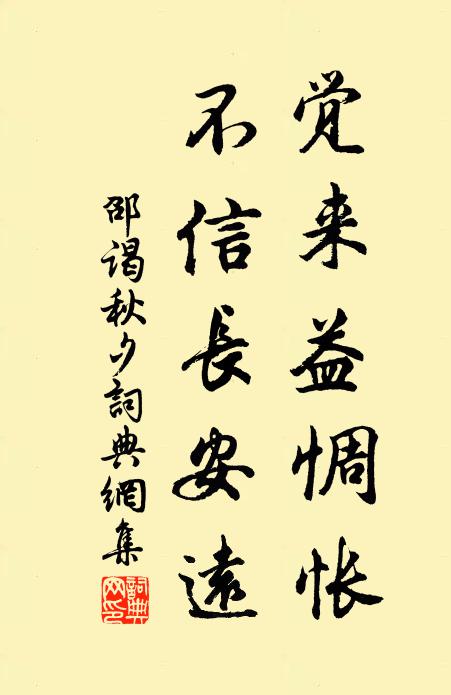 觉来益惆怅
不信長安遠
邵谒秋夕詞典網集
詞典网印